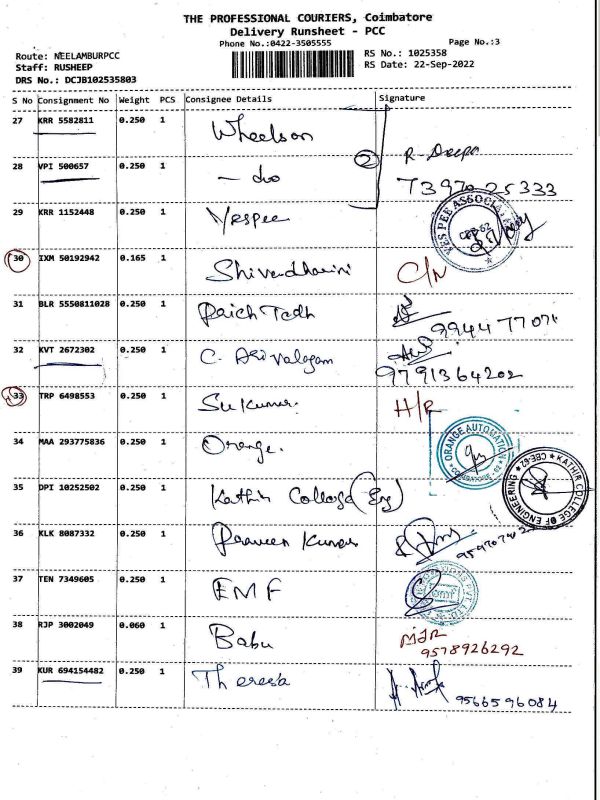 THE PROFESSIONAL COURIERS, Coimbatore
Delivery Runsheet - PCC
Phone No.:0422-3505555
Page No.:3
Route: NEELAMBURPCC
Staff: RUSHEEP
DRS No.: DCJB102535803
RS No.: 1025358
RS Date: 22-Sep-2022
S No Consignment No Weight PCS Consignee Details Signature
27 KRR 5582811 0.250 1 Wheelson
28 VPI 500657 0.250 1 - do 2 R. Deepa
73970 25333
29 KRR 1152448 0.250 1 Yespee YES PEE ASSOCIAT
30 IXM 50192942 0.165 1 Shivendharini C/N
31 BLR 5550811028 0.250 1 Paich Tech 99447707
32 KVT 2672302 0.250 1 C. Arivalagam
9791364202
33 TRP 6498553 0.250 1 Sukumar. H/R
34 MAA 293775836 0.250 1 Orange. ORANGE AUTOMATION
35 DPI 10252502 0.250 1 Kathir College (Eng) KATHIR COLLEGE OF ENGINEERING ★ CBE-62 ★
36 KLK 8087332 0.250 1 Praveen Kumar
37 TEN 7349605 0.250 1 EMF emf
38 RJP 3002049 0.060 1 Babu
9578926292
39 KUR 694154482 0.250 1 Theresa 9566596084